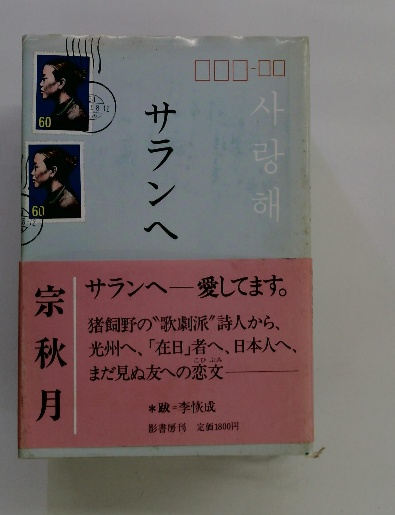 사랑해
サランへ
60
60
宗秋月
サランへ―愛してます。
猪飼野の〝歌劇派〟詩人から、
光州へ、「在日」者へ、日本人へ、
まだ見ぬ友への恋文―
こひぶみ
＊跋=李恢成
影書房刊 定価1800円